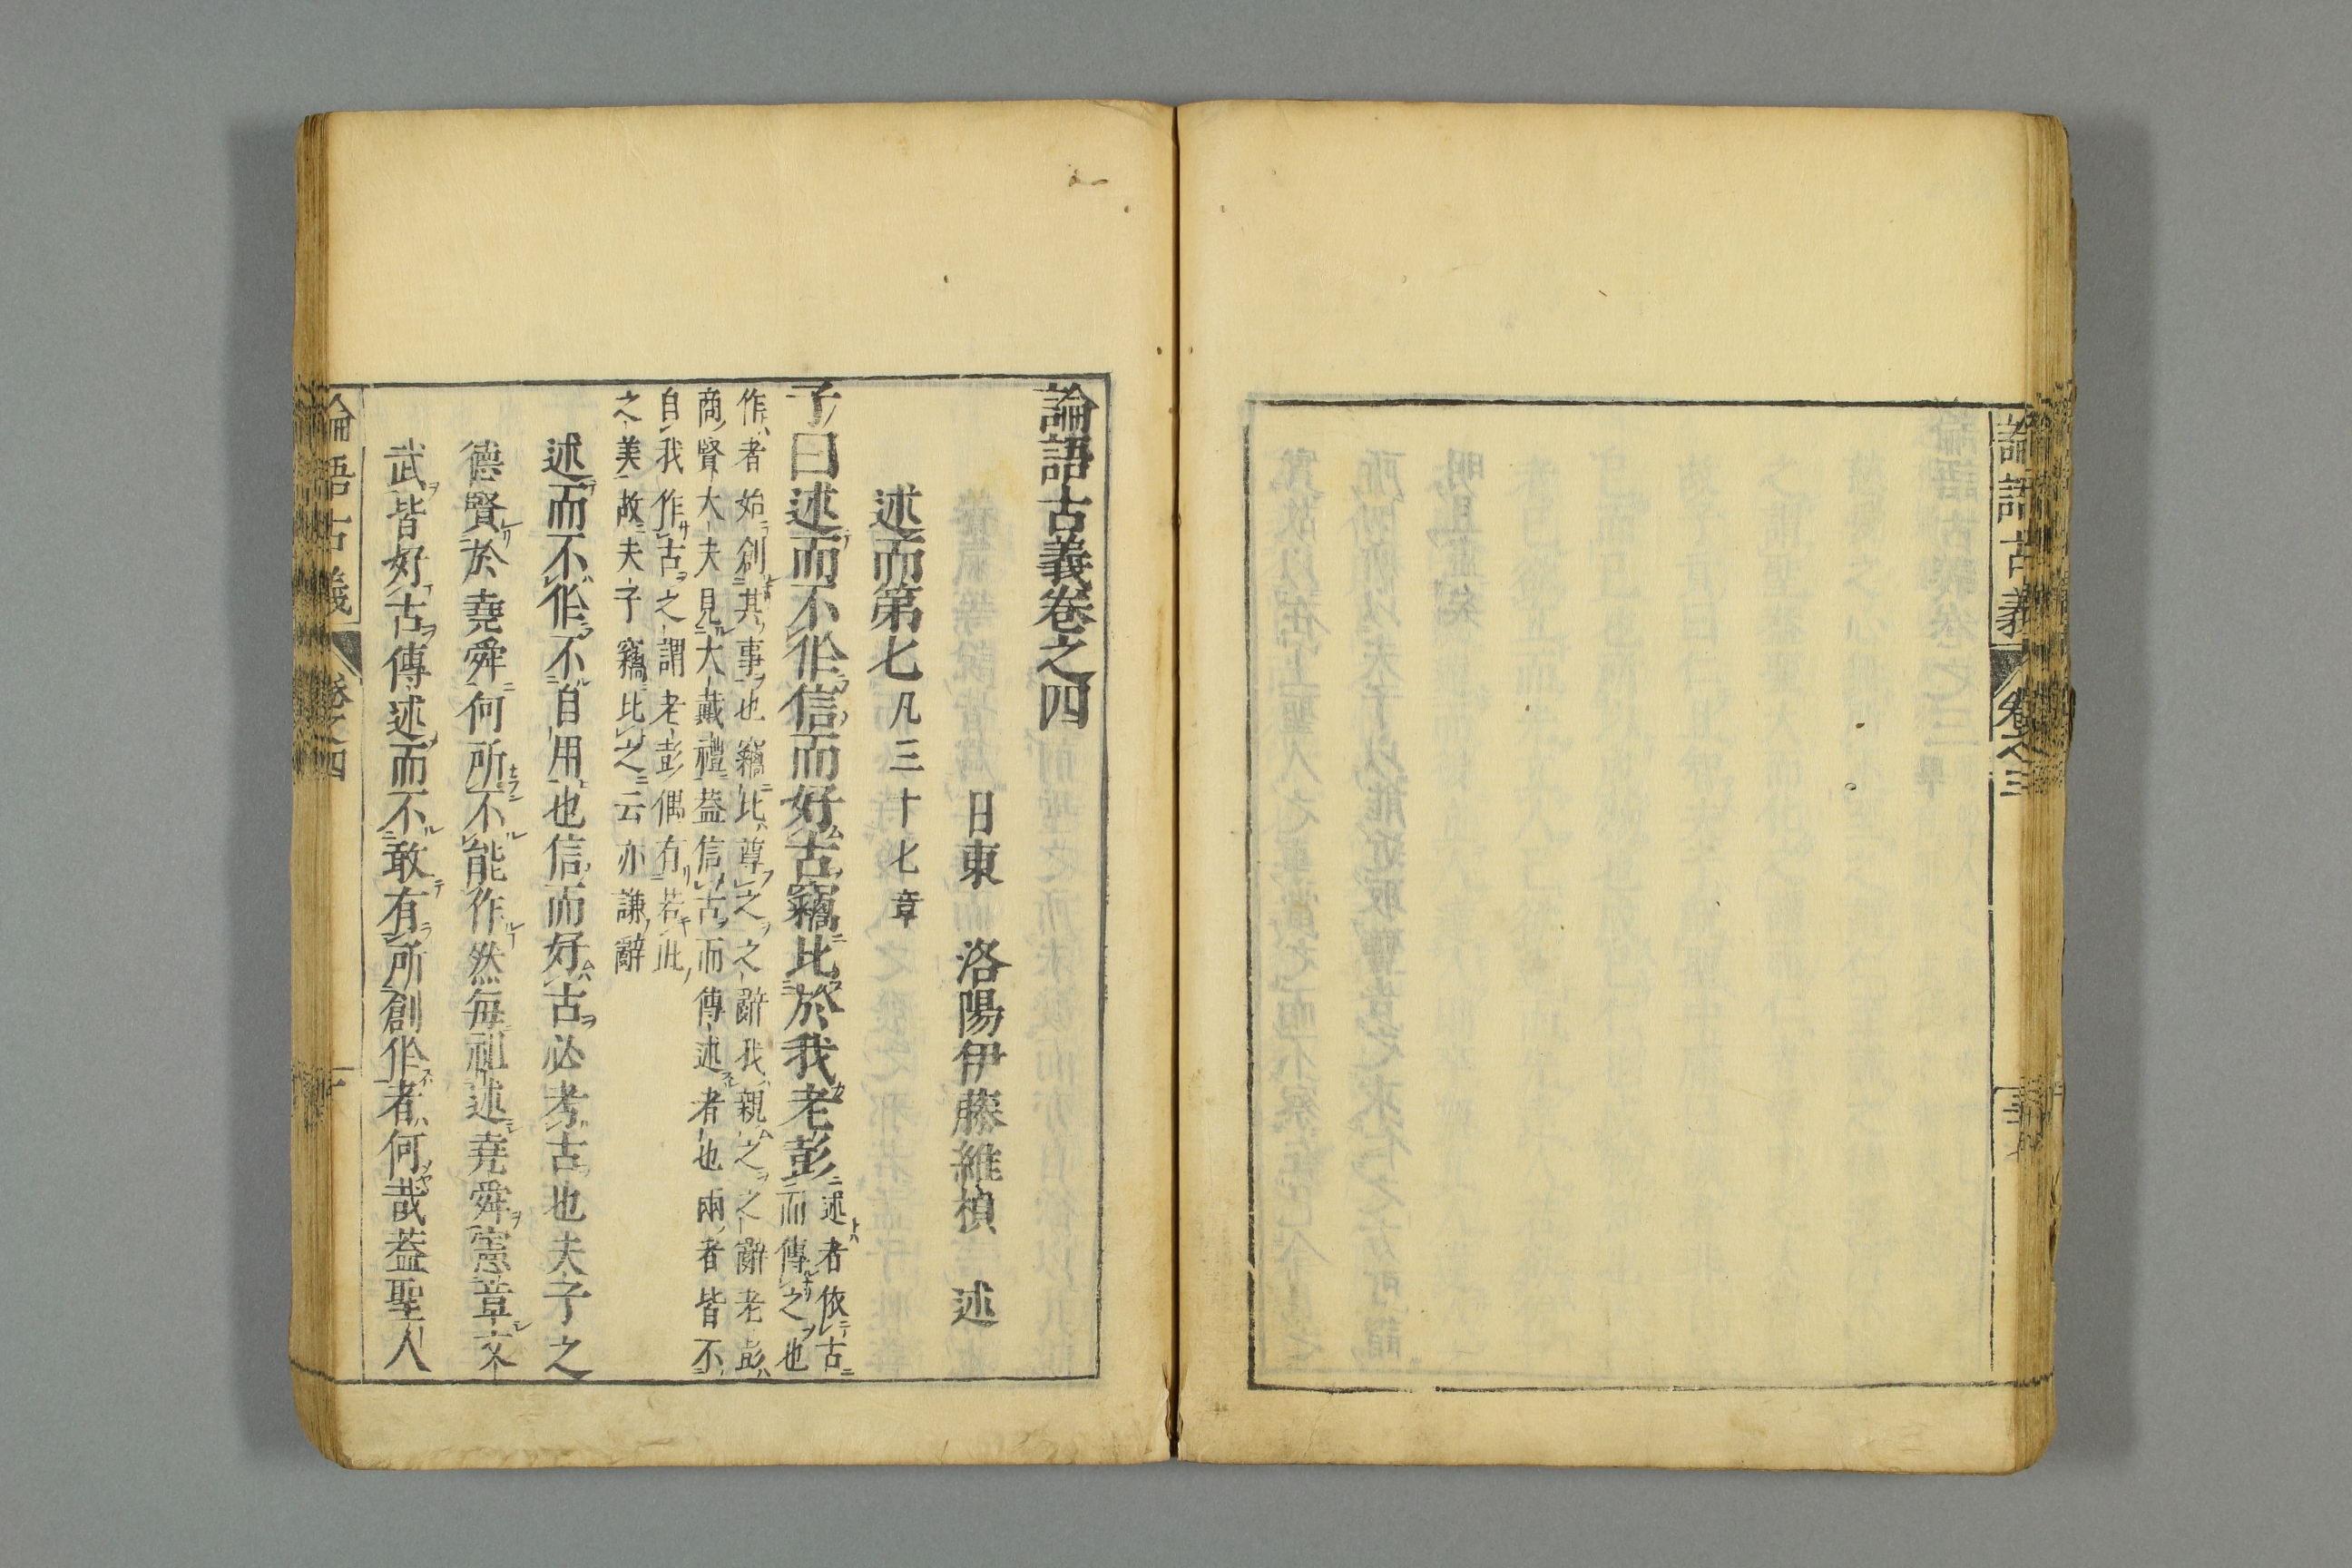 論語古義 卷之三
論語古義卷之四
日東 洛陽伊藤維楨 述
述而第七 凡三十七章
子曰述而不作信而好古竊比於我老彭 述者依古
而傳之也
作者始創其事也竊比尊之之辭我親之之辭老彭
商賢大夫見大戴禮蓋信古而傳述者也兩者皆不
自我作古之謂老彭偶有若此
之美故夫子竊比之云亦謙辭
述而不作不自用也信而好古必考古也夫子之
德賢於堯舜何所不能作然每祖述堯舜憲章文
武皆好古傳述而不敢有所創作者何哉蓋聖人
論語古義 卷之四